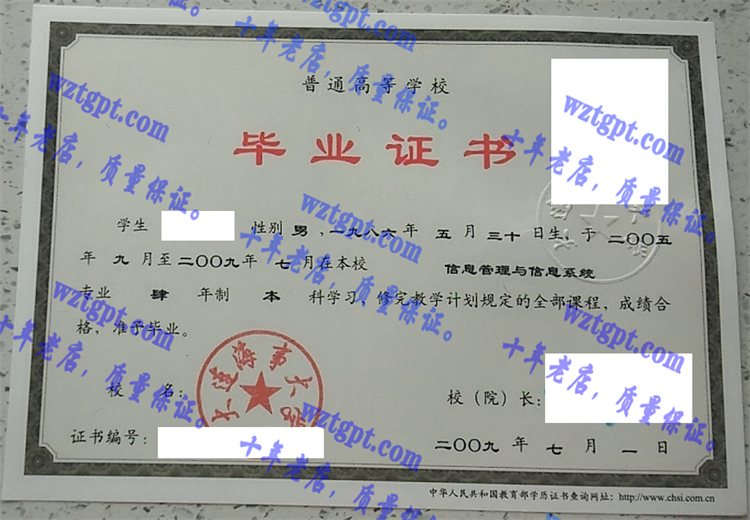 普通高等学校
毕业证书
学生 性别 男,一九八六年 五 月 三十 日生,于 二〇〇五
年 九 月至二〇〇九年 七 月在本校 信息管理与信息系统
专业 肆 年制 本 科学习,修完教学计划规定的全部课程,成绩合
格,准予毕业。
大连海事大学
校 名:
校(院)长:
证书编号:
二〇〇九 年 七 月 一 日
中华人民共和国教育部学历证书查询网址:http://www.chsi.com.cn
wztgpt.com
十年老店,质量保证。
wztgpt.com
十年老店,质量保证。
wztgpt.com
十年老店,质量保证。
wztgpt.com
十年老店,质量保证。
wztgpt.com
十年老店,质量保证。
wztgpt.com
十年老店,质量保证。
wztgpt.com
十年老店,质量保证。
wztgpt.com
十年老店,质量保证。